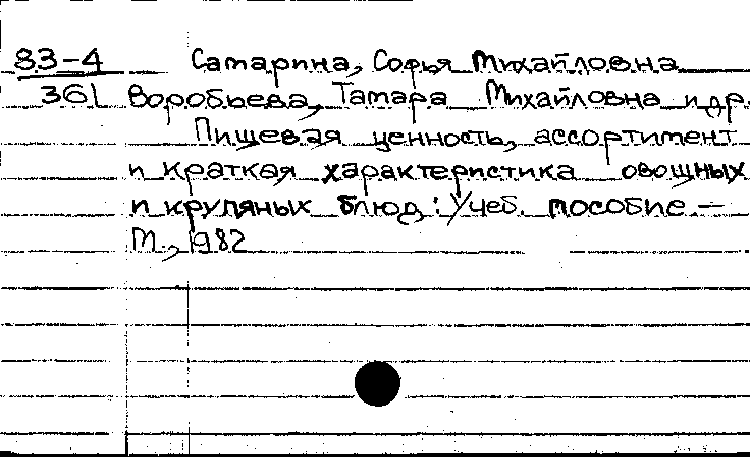 83-4 Самарина, Софья Михайловна
361 Воробьева, Тамара Михайловна и др.
Пищевая ценность, ассортимент
и краткая характеристика овощных
и круляных блюд: Учеб. пособие. —
М., 1982